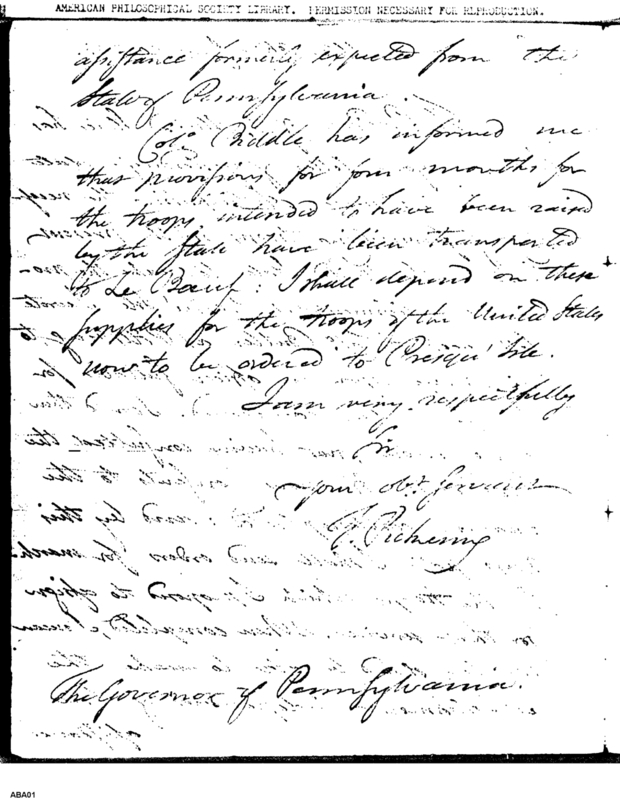 AMERICAN PHILOSOPHICAL SOCIETY LIBRARY. PERMISSION NECESSARY FOR REPRODUCTION.
assistance formerly expected from the
State of Pennsylvania.
Col. Biddle has informed me
that provisions for four months for
the troops intended to have been raised
by the State have been transported
to Le Boeuf: I shall depend on these
supplies for the troops of the United States
now to be ordered to Presqu' Isle.
I am very respectfully
Sir
your obt. servant
T. Pickering
The Governor of Pennsylvania.
ABA01